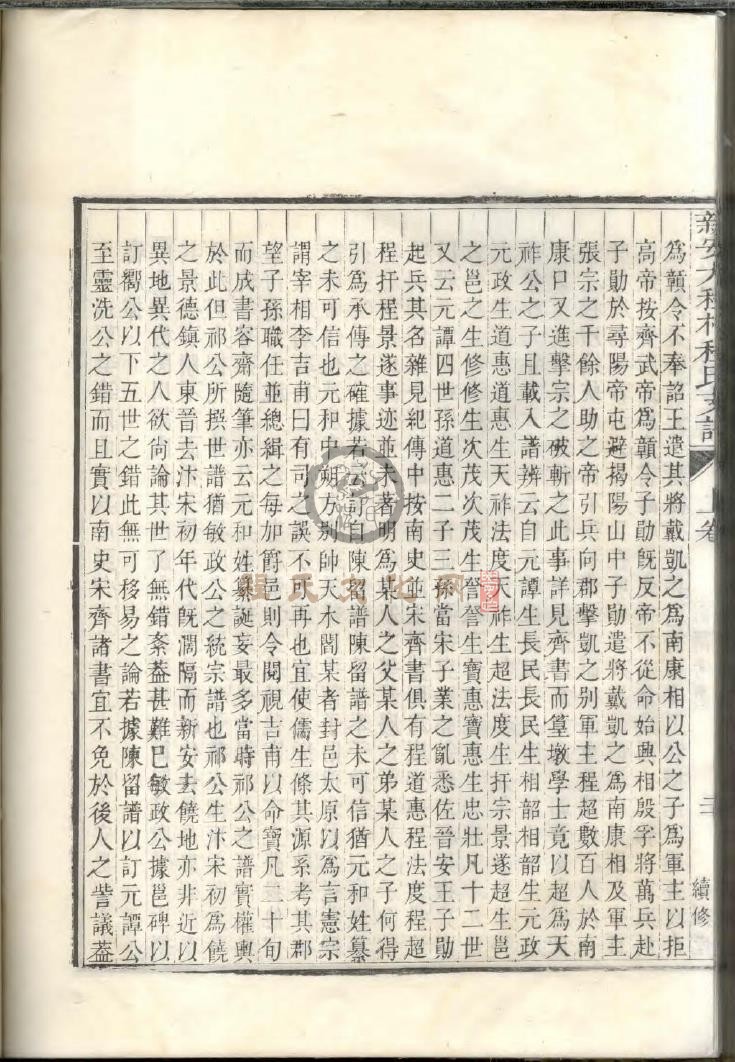 新安大程村程氏支譜
上卷
三
續修
為贑令不奉詔王遣其將戴凱之為南康相以公之子為軍主以拒
高帝按齊武帝為贑令子勛旣反帝不從命始興相殷孚將萬兵赴
子勛於尋陽帝屯避揭陽山中子勛遣將戴凱之為南康相及軍主
張宗之千餘人助之帝引兵向郡擊凱之别軍主程超數百人於南
康口又進擊宗之破斬之此事詳見齊書而篁墩學士竟以超為天
祚公之子且載入譜辨云自元譚生長民長民生相韶相韶生元政
元政生道惠道惠生天祚法度天祚生超法度生扞宗景遂超生邕
之邕之生修修生次茂次茂生詧詧生寶惠寶惠生忠壯凡十二世
又云元譚四世孫道惠二子三孫當宋子業之亂悉佐晉安王子勛
起兵其名雜見紀傳中按南史並宋齊書俱有程道惠程法度程超
程扞程景遂事迹並未著明為某人之父某人之弟某人之子何得
引為承傳之確據若云訂自陳留譜陳留譜之未可信猶元和姓纂
之未可信也元和中朔方别帥天水閻某者封邑太原以為言憲宗
謂宰相李吉甫曰有司之誤不可再也宜使儒生條其源系考其郡
望子孫職任並總緝之每加爵邑則令閱視吉甫以命寶凡二十旬
而成書容齋隨筆亦云元和姓纂誕妄最多當時祁公之譜實權輿
於此但祁公所撰世譜猶敏政公之統宗譜也祁公生汴宋初為饒
之景德鎮人東晉去汴宋初年代旣濶隔而新安去饒地亦非近以
異地異代之人欲尙論其世了無錯紊葢甚難巳敏政公據邕碑以
訂嚮公以下五世之錯此無可移易之論若據陳留譜以訂元譚公
至靈洗公之錯而且實以南史宋齊諸書宜不免於後人之訾議葢